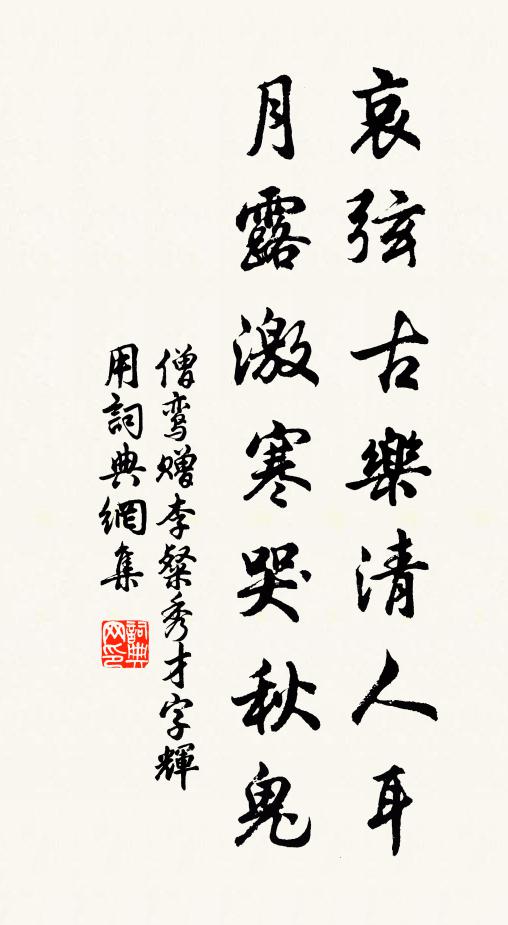 哀弦古樂清人耳
月露激寒哭秋鬼
僧鸾赠李粲秀才字輝
用詞典網集
詞典网印